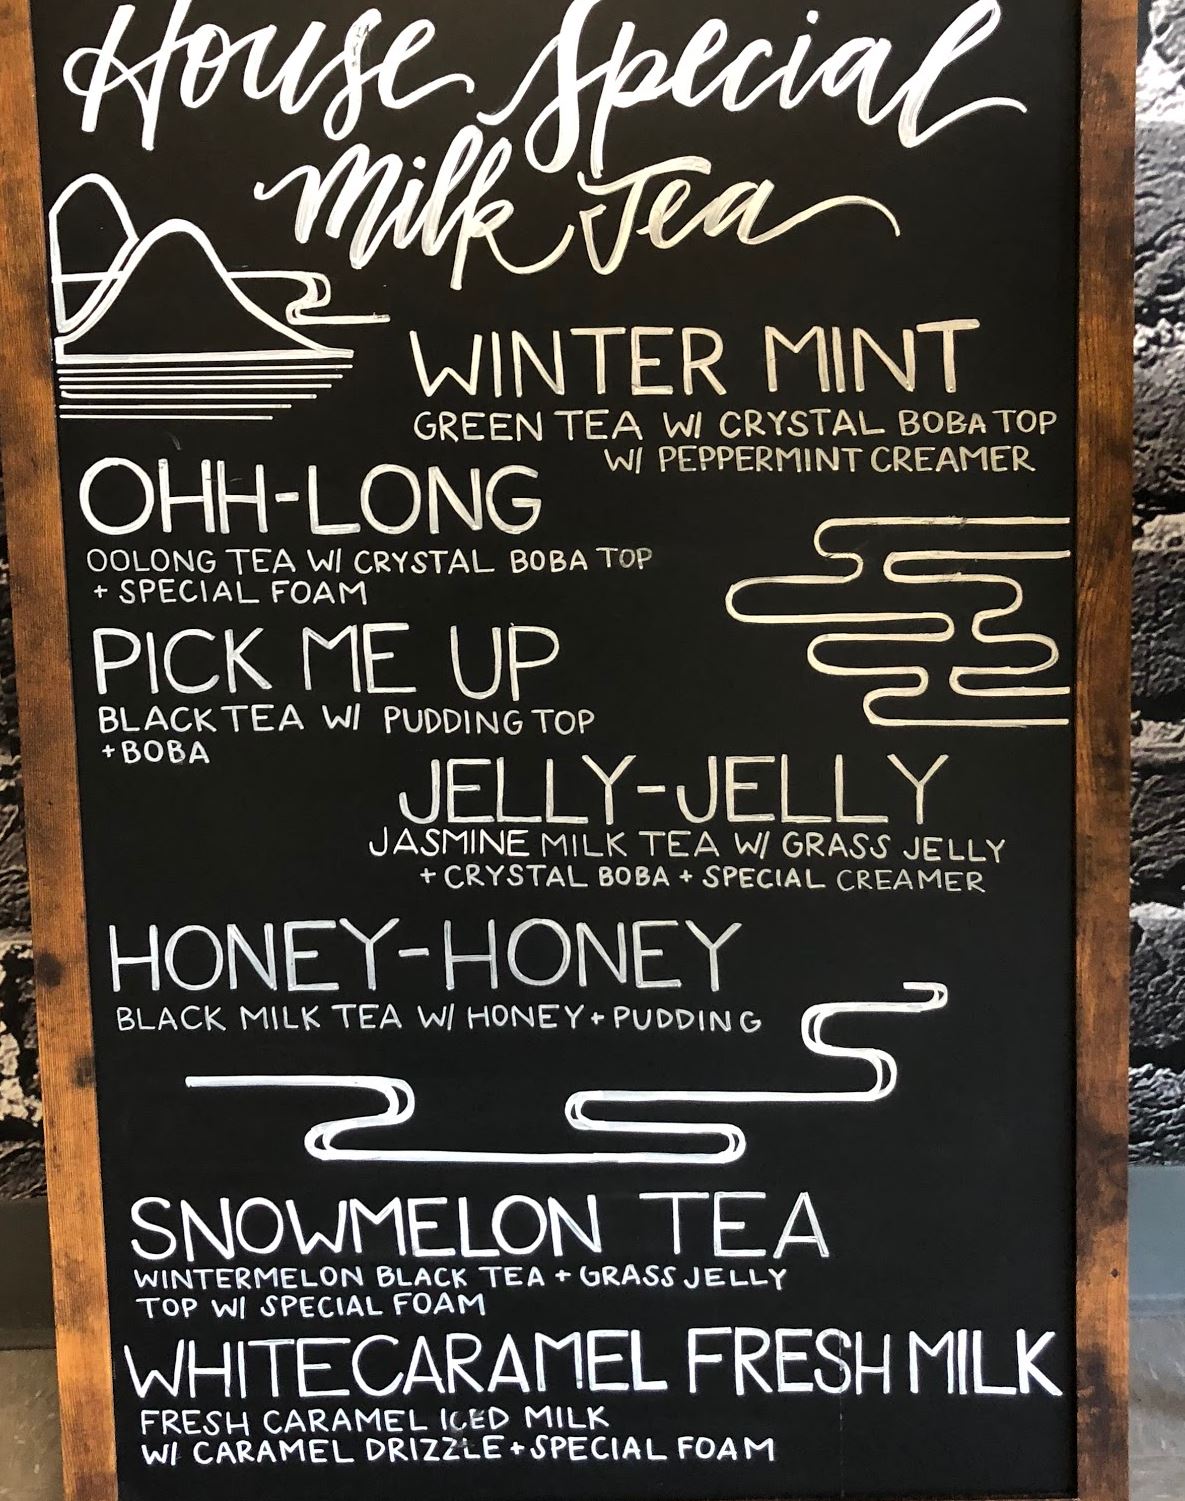 House Special
Milk Tea
WINTER MINT
GREEN TEA W/ CRYSTAL BOBA TOP
W/ PEPPERMINT CREAMER
OHH-LONG
OOLONG TEA W/ CRYSTAL BOBA TOP
+ SPECIAL FOAM
PICK ME UP
BLACK TEA W/ PUDDING TOP
+BOBA
JELLY-JELLY
JASMINE MILK TEA W/ GRASS JELLY
+ CRYSTAL BOBA + SPECIAL CREAMER
HONEY-HONEY
BLACK MILK TEA W/ HONEY + PUDDING
SNOWMELON TEA
WINTERMELON BLACK TEA + GRASS JELLY
TOP W/ SPECIAL FOAM
WHITE CARAMEL FRESH MILK
FRESH CARAMEL ICED MILK
W/ CARAMEL DRIZZLE + SPECIAL FOAM